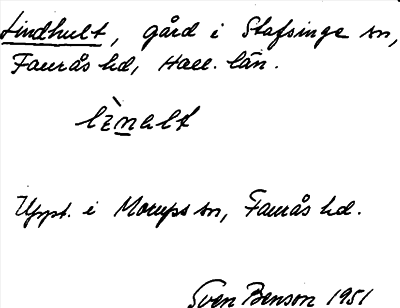 Lindhult, gård i Stafsinge sn,
Faurås hd, Hall. län.
Uppt. i Morups sn, Faurås hd.
Sven Benson 1951